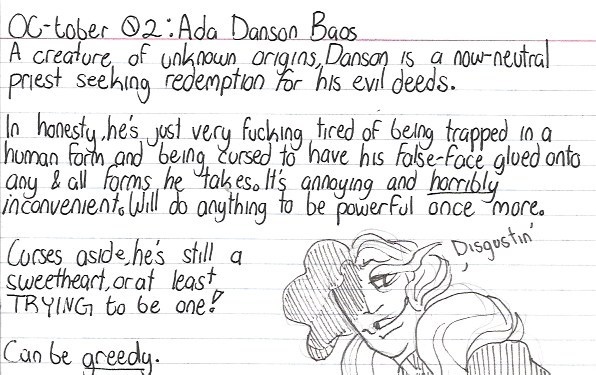 OC-tober 02: Ada Danson Baos
A creature of unknown origins, Danson is a now-neutral
priest seeking redemption for his evil deeds.
In honesty, he's just very fucking tired of being trapped in a
human form and being cursed to have his false-face glued onto
any & all forms he takes. It's annoying and horribly
inconvenient. Will do anything to be powerful once more.
Curses aside, he's still a
sweetheart, or at least
TRYING to be one!
Can be greedy.
Disgustin'